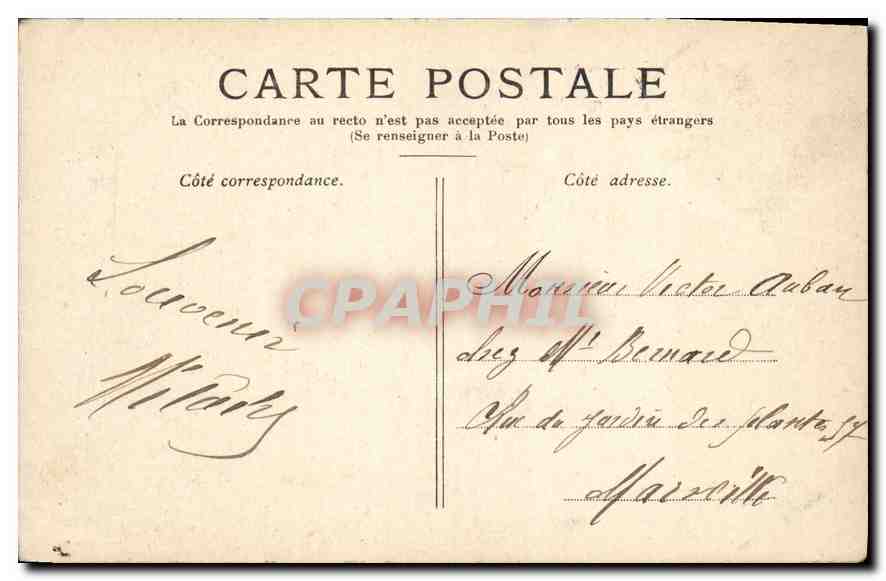 CARTE POSTALE
La Correspondance au recto n'est pas acceptée par tous les pays étrangers
(Se renseigner à la Poste)
Côté correspondance.
Côté adresse.
Souvenir
Monsieur Victor Auban
chez Mr Bernard
Rue du jardin des plantes 57
Marseille
CPAPHIL